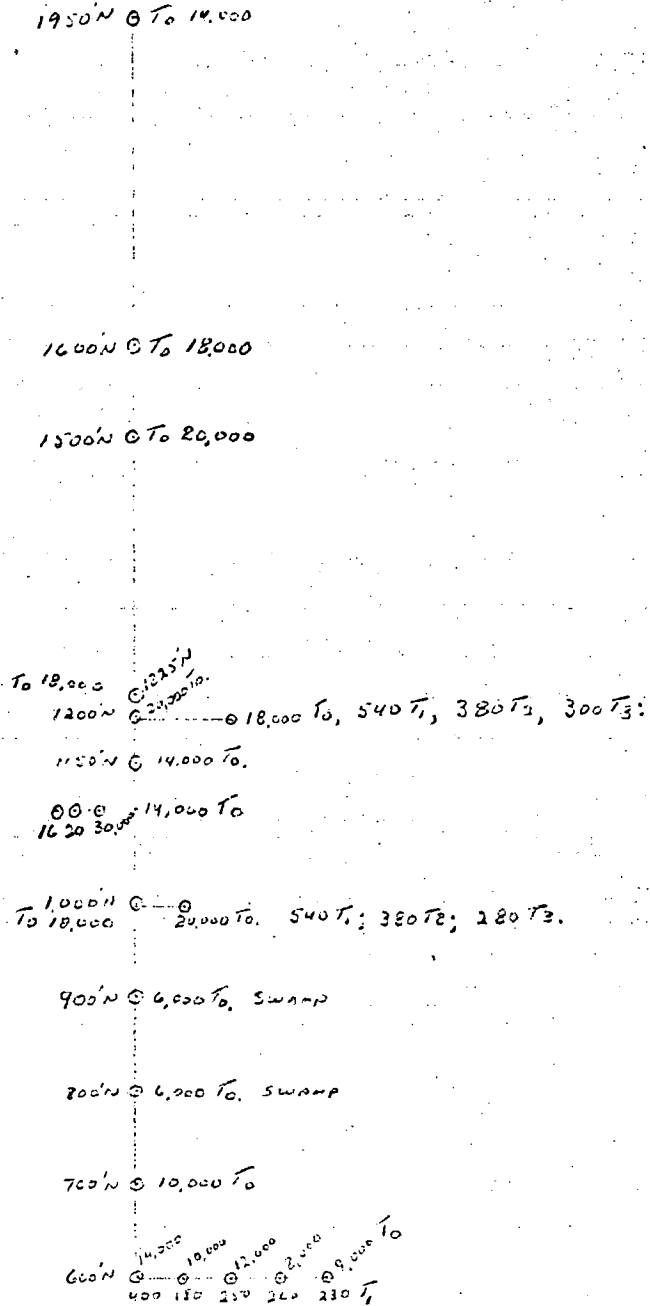 1950'N ⊙ To 14,000
1600'N ⊙ To 18,000
1500'N ⊙ To 20,000
To 18,000 ⊙ 1225'N
1200'N ⊙ 20,000 To.
⊙ 18,000 To, 540 T1, 380 T2, 300 T3:
1150'N ⊙ 14,000 To.
⊙ ⊙ ⊙ 14,000 To
16 20 30,000
1,000'N ⊙ ⊙
To 18,000 20,000 To. 540 T1; 380 T2; 280 T3.
900'N ⊙ 6,000 To. SWAMP
800'N ⊙ 6,000 To. SWAMP
700'N ⊙ 10,000 To
14,000 10,000 12,000 8,000 9,000 To
600'N ⊙ ⊙ ⊙ ⊙ ⊙
400 180 250 260 230 T1